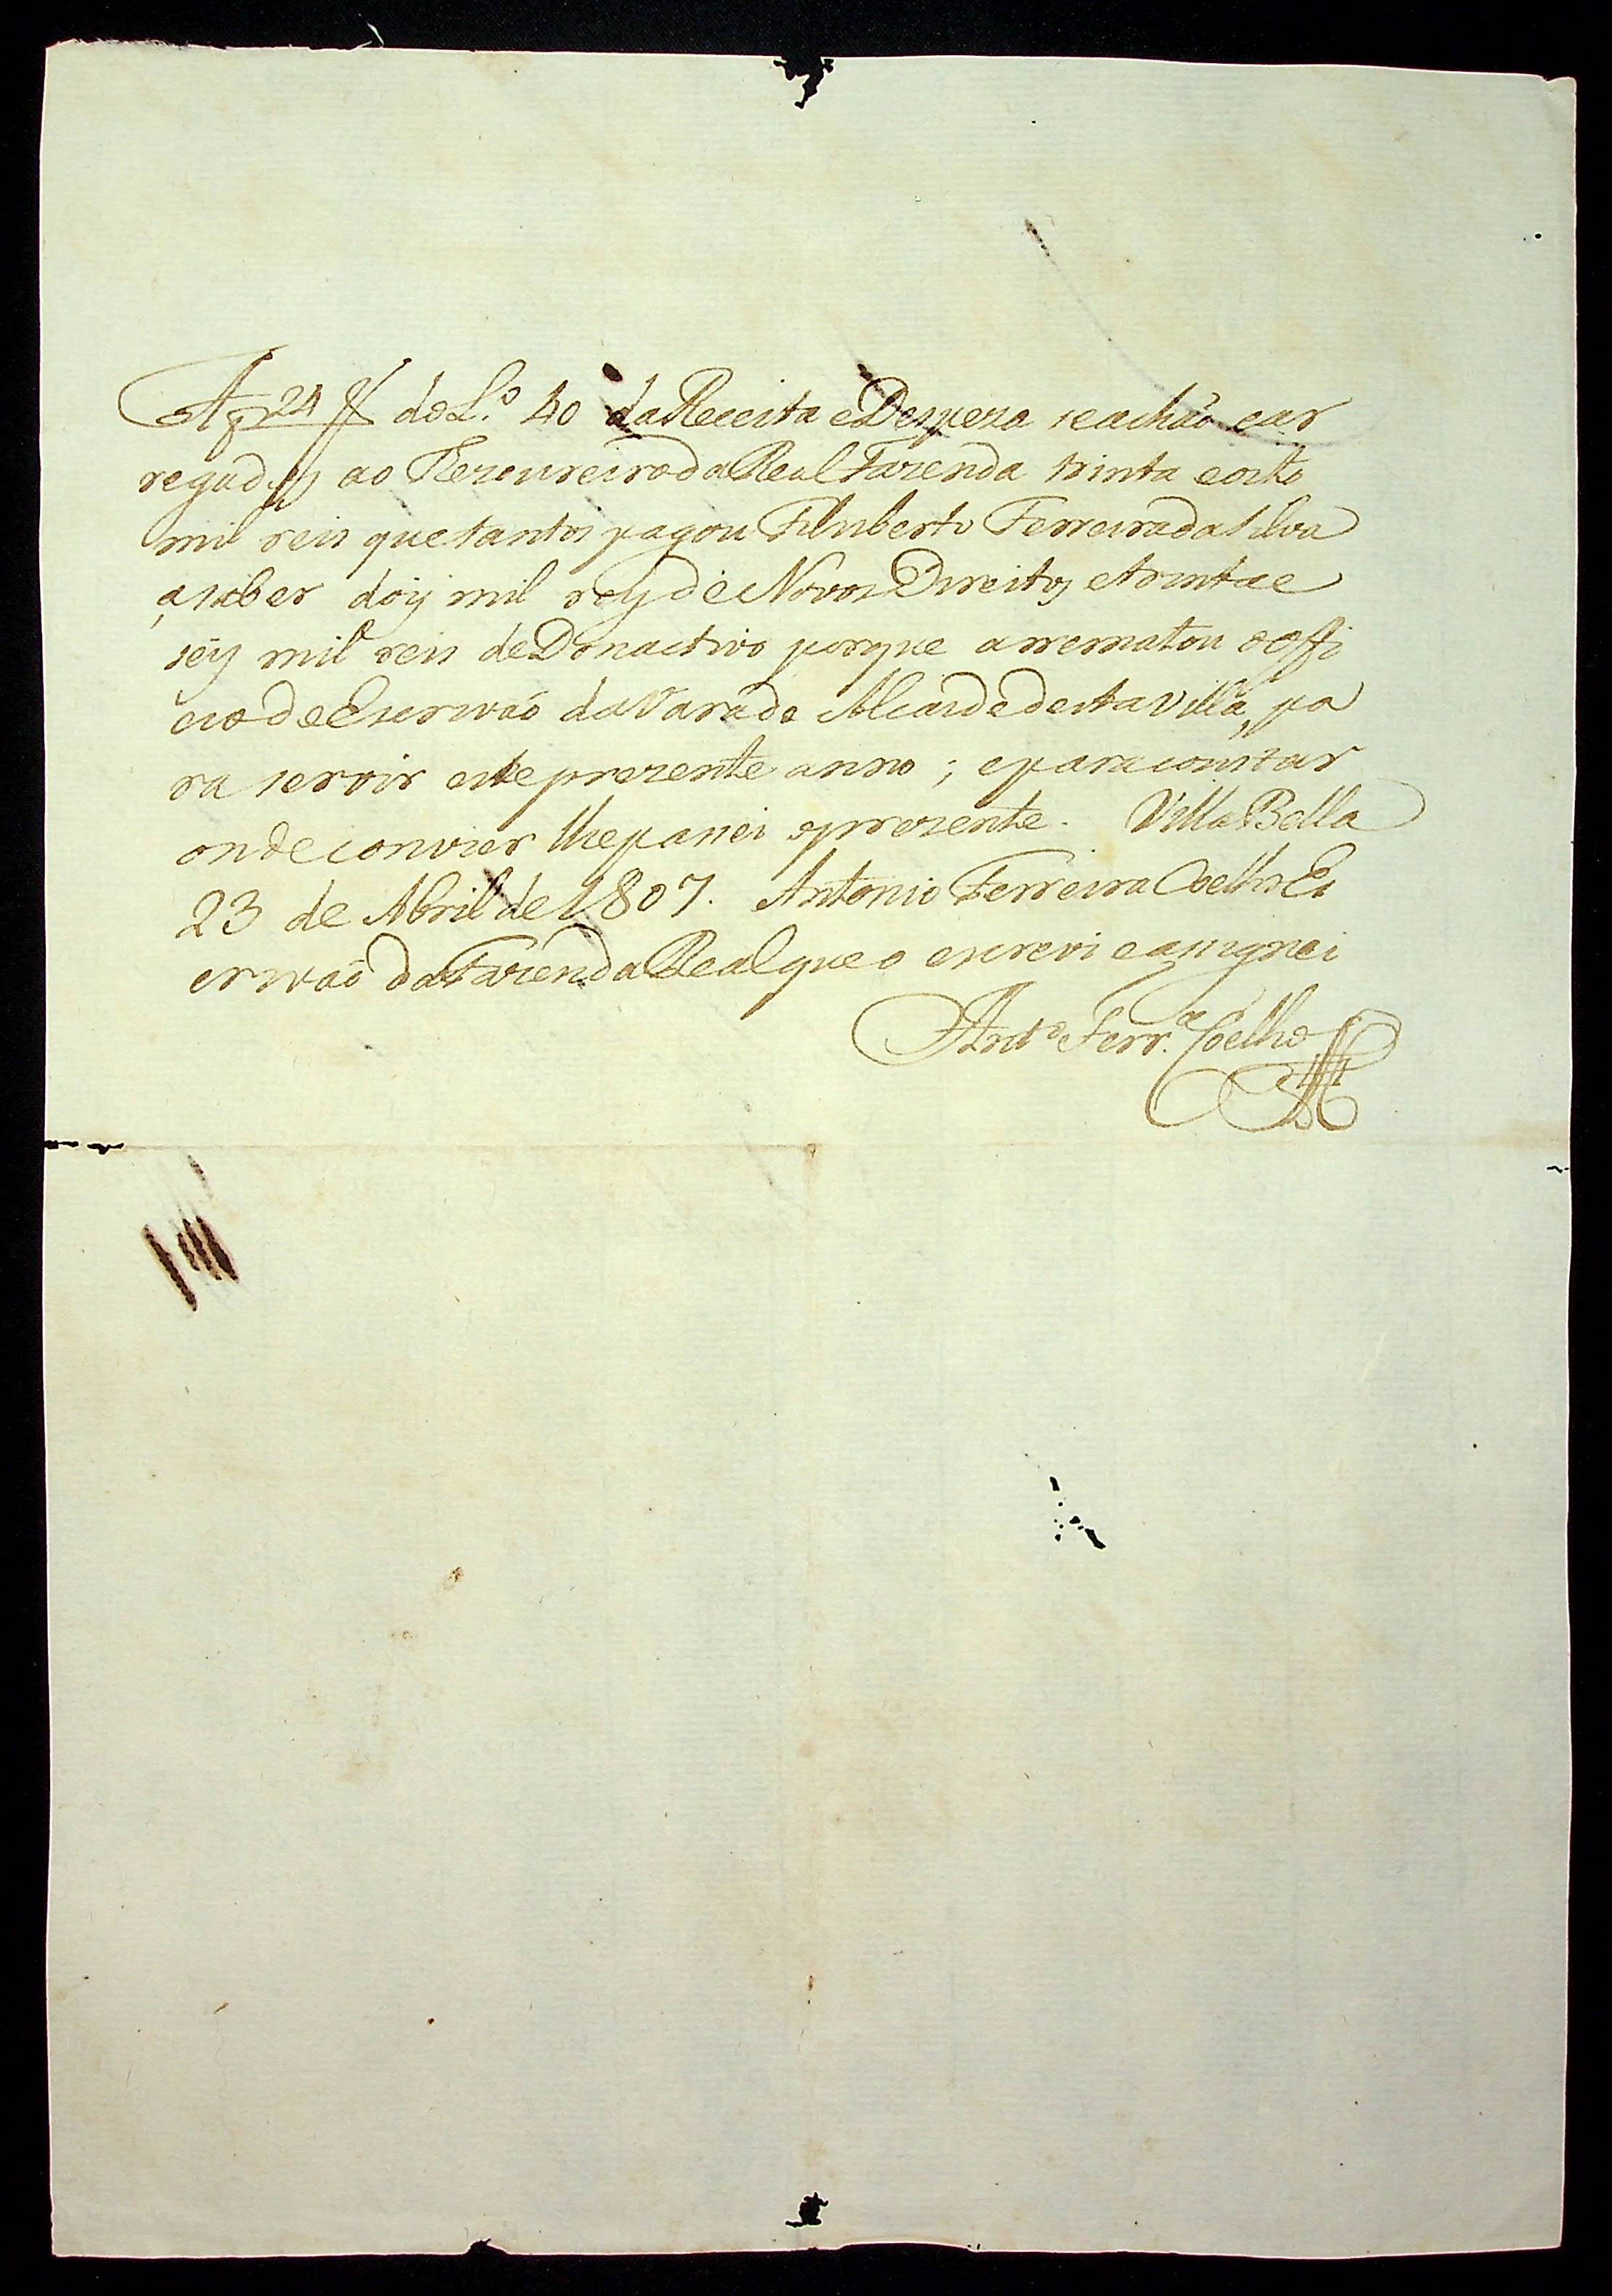 A f 24 do L.º 40 da Receita e Despeza se achão car
regados ao Thezoureiro da Real Fazenda trinta e oito
mil reis que tantos pagou Filuberto Ferreira da Silva
a saber dois mil reys de Novos Direitos e trinta e
seis mil reis de Donactivo porque arrematou o offi
cio de Escrivão da Vara do Alcaide desta Villa, pa
ra servir este prezente anno; e para constar
onde convier lhe passei o prezente. Villa Bella
23 de Abril de 1807. Antonio Ferreira Coelho Es
crivaõ da Fazenda Real que o escrevi e assignei
Antº Ferr.ª Coelho